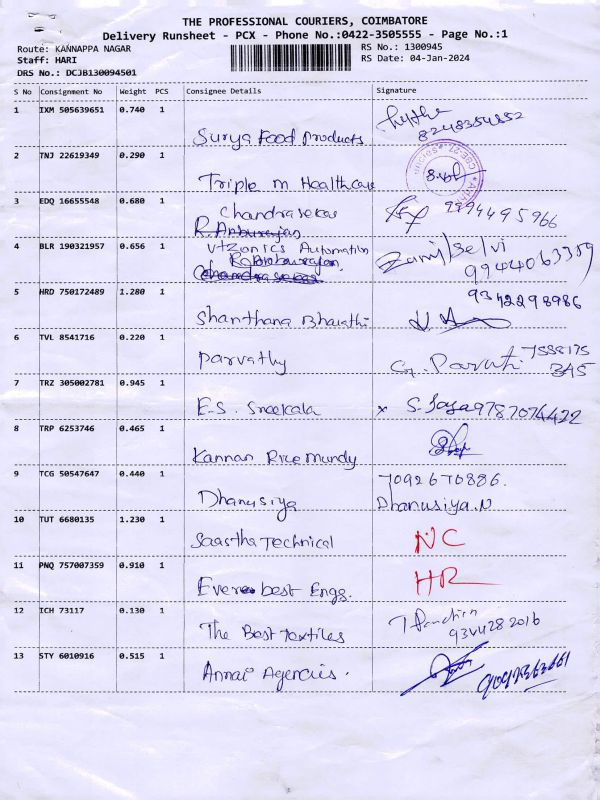 THE PROFESSIONAL COURIERS, COIMBATORE
Delivery Runsheet - PCX - Phone No.:0422-3505555 - Page No.:1
Route: KANNAPPA NAGAR
RS No.: 1300945
Staff: HARI
RS Date: 04-Jan-2024
DRS No.: DCJB130094501
S No Consignment No Weight PCS Consignee Details Signature
1 IXM 505639651 0.740 1
Surya Food Products 8248354852
2 TNJ 22619349 0.290 1
Triple m Healthcare
3 EDQ 16655548 0.680 1
Chandrasekar 9994495966
R. Anburajan
4 BLR 190321957 0.656 1
Vtzonics Automation
9944063359
5 HRD 750172489 1.280 1
9342298986
Shanthana Bharathi
6 TVL 8541716 0.220 1
Parvathy G. Parvathi
7 TRZ 305002781 0.945 1
E.S. Sreekala x S. Jaya 9787074422
8 TRP 6253746 0.465 1
Kannan Rice mundy
9 TCG 50547647 0.440 1
7092670886.
Dhanusiya Dhanusiya.N
10 TUT 6680135 1.230 1
Saastha Technical NC
11 PNQ 757007359 0.910 1
Everbest Engs. HR
12 ICH 73117 0.130 1
The Best Textiles
13 STY 6010916 0.515 1
Annai Agencies.